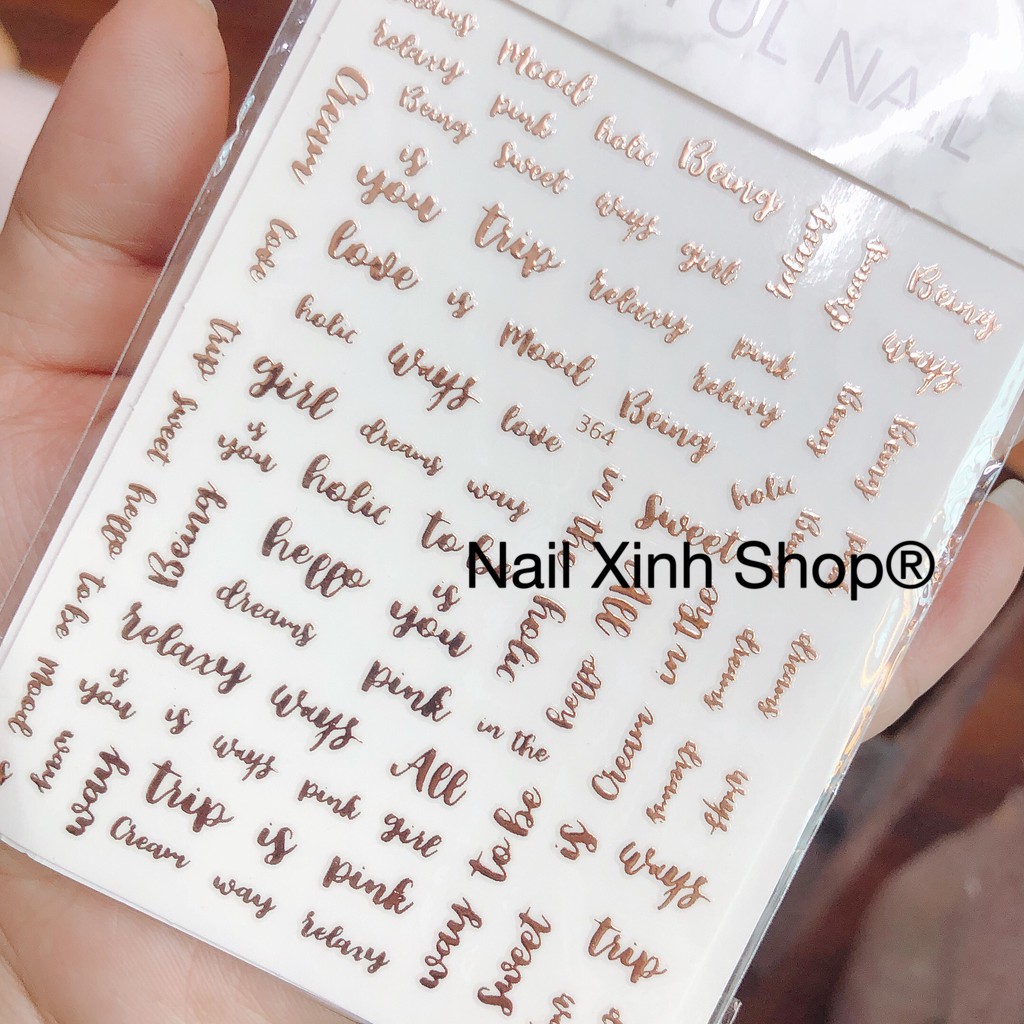 UL NAIL
dreams
relaxy
Mood
Cream
Being
pink
holic
Being
is
you
sweet
ways
girl
relaxy
Being
Being
love
love
trip
relaxy
pink
ways
holic
is
Mood
relaxy
trip
girl
ways
love
364
Being
Being
sweet
is
you
dreams
way
in the
sweet
holic
hello
Being
holic
to be
Nail Xinh Shop®
hello
is
you
holic
All
in the
dreams
dreams
to be
relaxy
dreams
pink
hello
Mood
is
you
is
ways
in the
Cream
way
way
trip
ways
pink
All
girl
to be
is
ways
Cream
is
pink
way
relaxy
way
sweet
trip